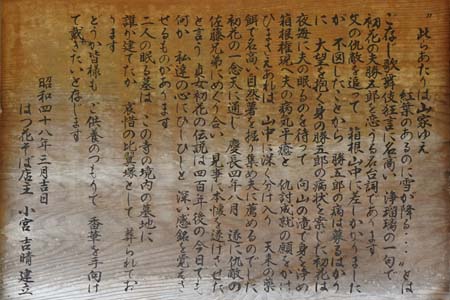 “此らあたりは山家ゆえ
紅葉のあるのに雪が降る…”とは
ご存じ歌舞伎狂言に名高い浄瑠璃の一句で
初花の夫勝五郎を恋うる名台詞であります
父の仇敵を追って 箱根山中に差しかかりました
が 不図したことから 勝五郎の病は募るばかり
に 大望を抱く身の勝五郎の病状と察して初花は
夜毎に夫の眠るのを待って 向山の滝で身を浄め
箱根権現へ夫の病気平癒と 仇討成就の願をかけ
ひまさえあれば 山中に深く分け入り 天来の糸
餌で名高い自然薯を掘り集め夫に薦めるのでした
初花の一念天に通じ 慶長四年八月 遂に仇敵の
佐藤兄弟にめぐり会い 見事に本懐を遂げさせた
と言う 貞女初花の伝説は四百年後の今日でも
何か 私達の心にひしひしと 深い感銘を覚えさ
せるものがあります
二人の眠る墓は この寺の境内の墓地に
誰が建てたか 哀惜の比翼塚として 葬られてお
ります
どうか皆様も ご供養のつもりで 香華を手向け
て戴きたいと存じます
昭和四十八年三月吉日
はつ花そば店主 小宮吉晴建立